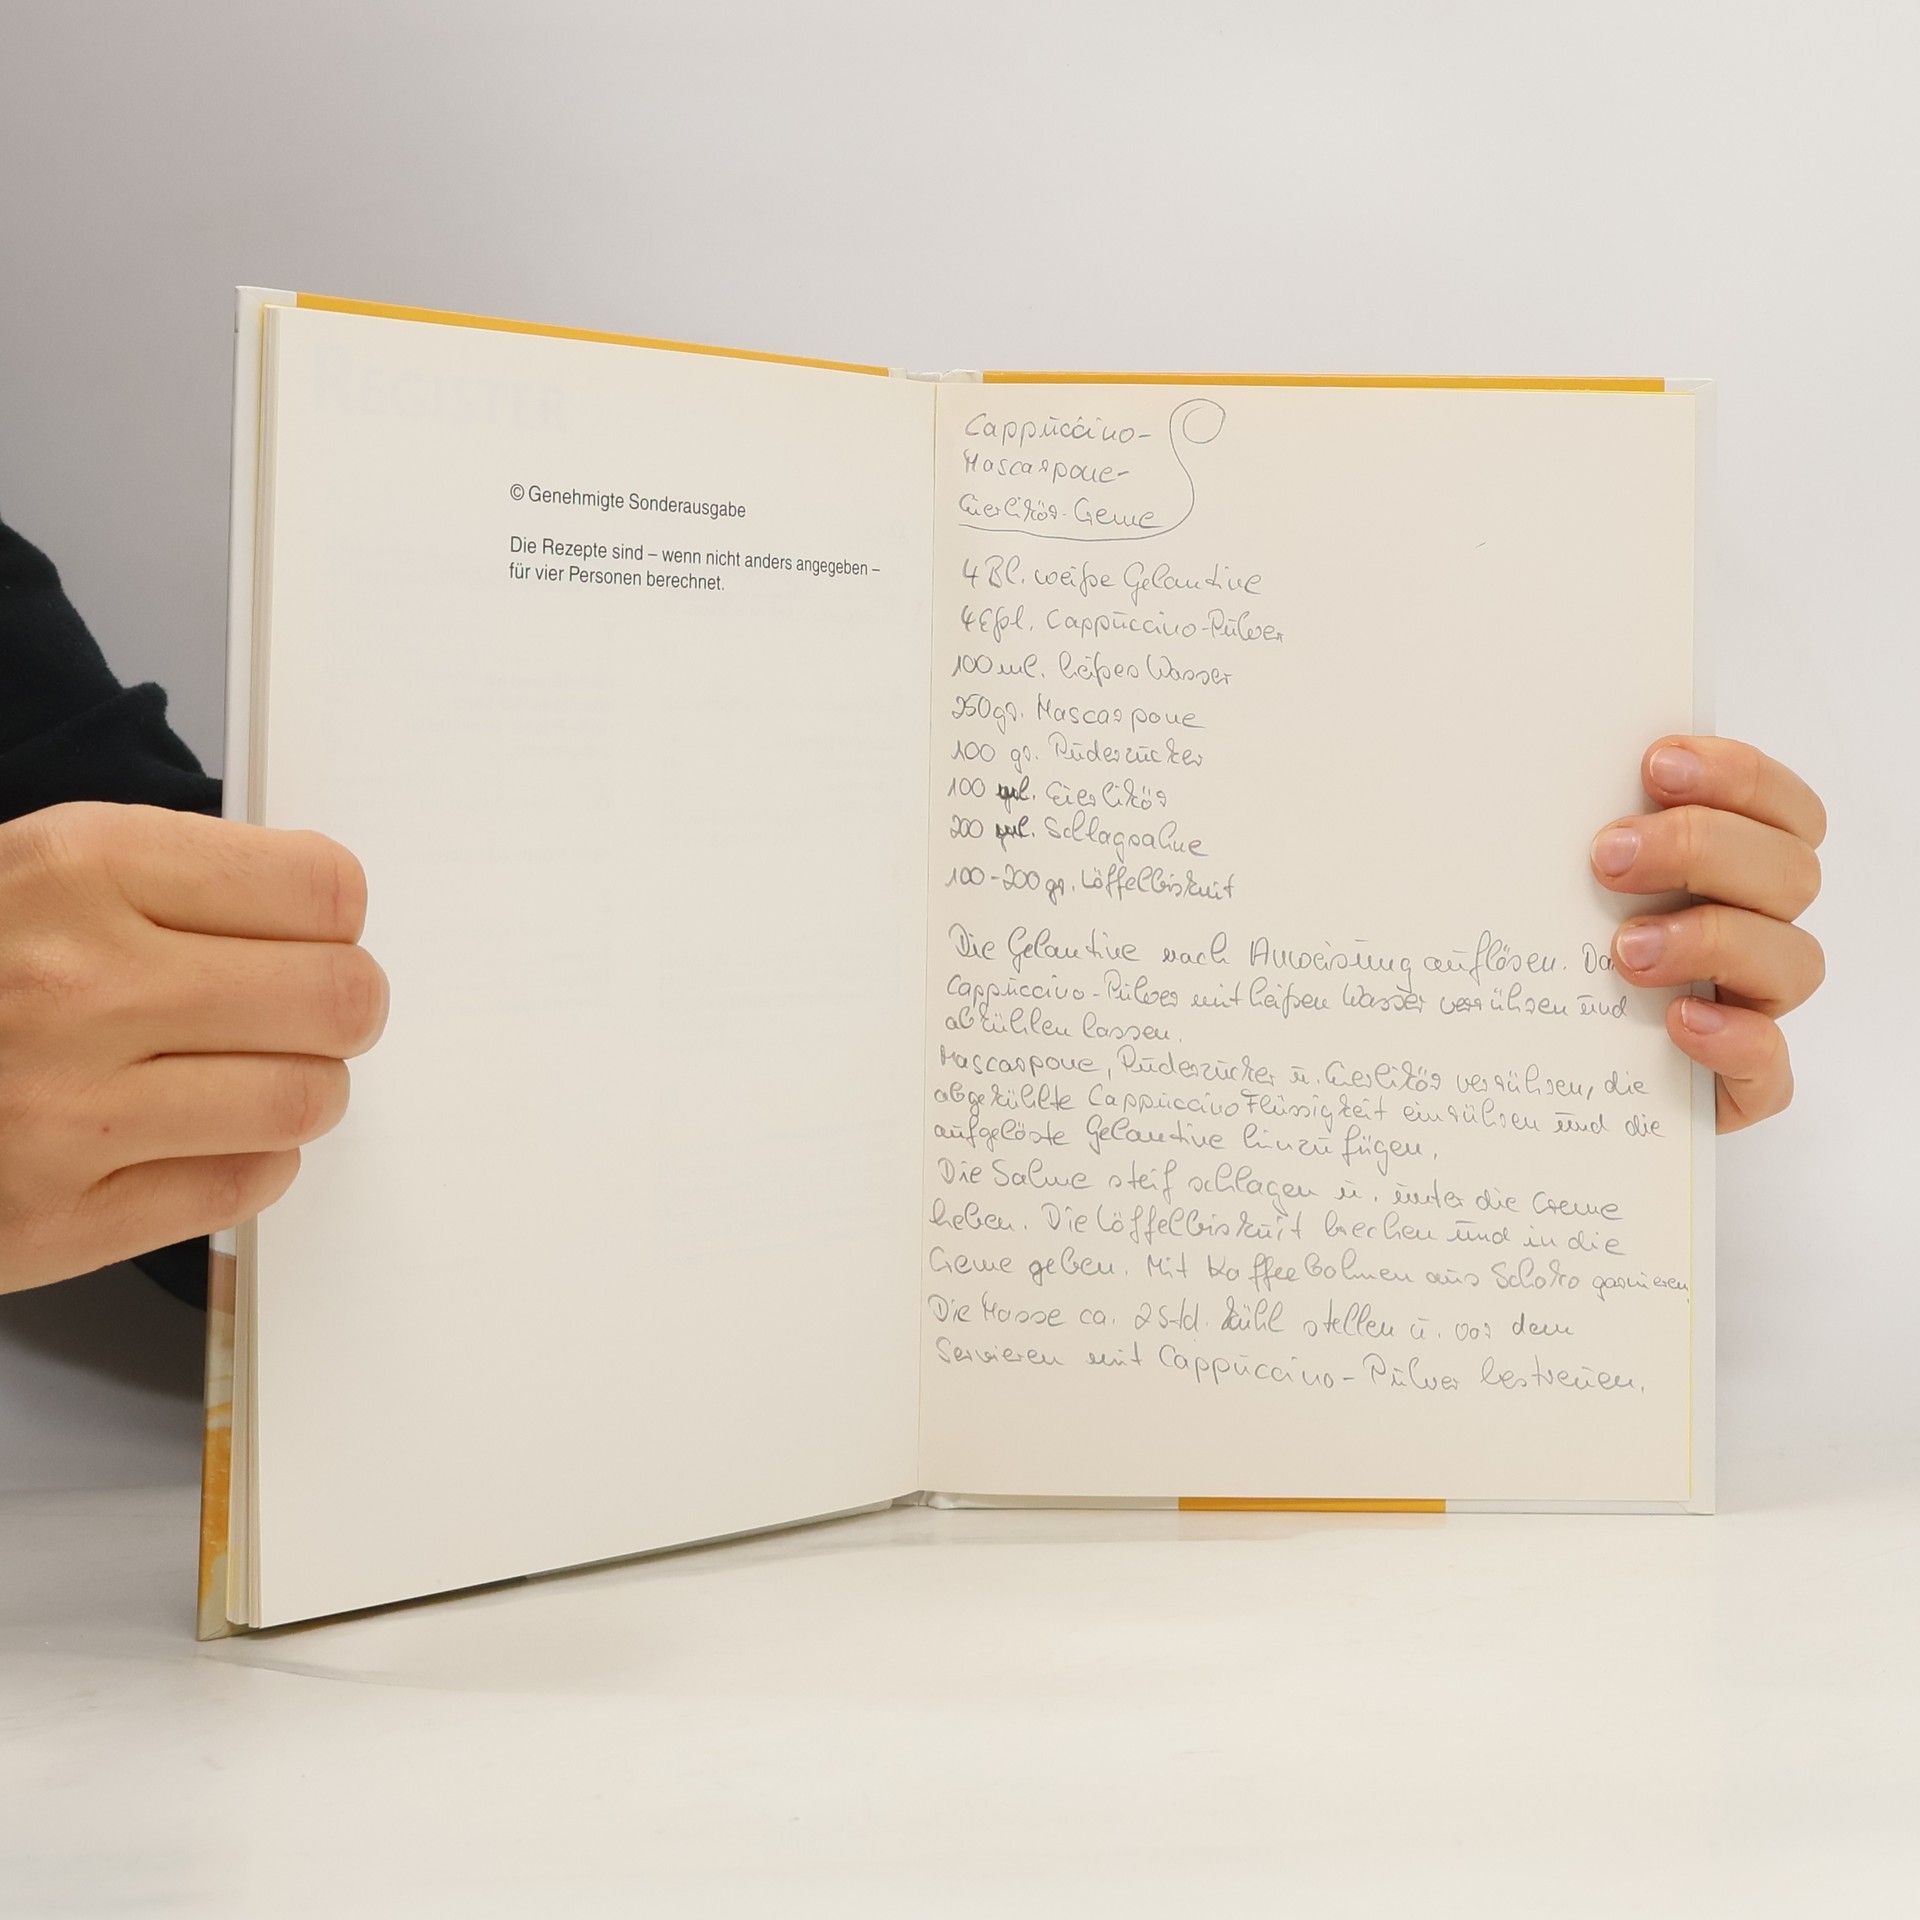 REGISTER
© Genehmigte Sonderausgabe
Die Rezepte sind – wenn nicht anders angegeben –
für vier Personen berechnet.
Cappuccino-
Mascarpone-
Eierlikör-Creme
4 Bl. weiße Gelantine
4 Eßl. Cappuccino-Pulver
100 ml. heißes Wasser
250 gr. Mascarpone
100 gr. Puderzucker
100 ml. Eierlikör
200 ml. Schlagsahne
100-200 gr. Löffelbiskuit
Die Gelantine nach Anweisung auflösen. Da
Cappuccino-Pulver mit heißen Wasser verrühren und
abkühlen lassen.
Mascarpone, Puderzucker u. Eierlikör verrühren, die
abgekühlte Cappuccino Flüssigkeit einrühren und die
aufgelöste Gelantine hinzufügen.
Die Sahne steif schlagen u. unter die Creme
heben. Die Löffelbiskuit brechen und in die
Creme geben. Mit Kaffeebohnen aus Schoko garnieren.
Die Masse ca. 2 Std. kühl stellen u. vor dem
Servieren mit Cappuccino-Pulver bestreuen.